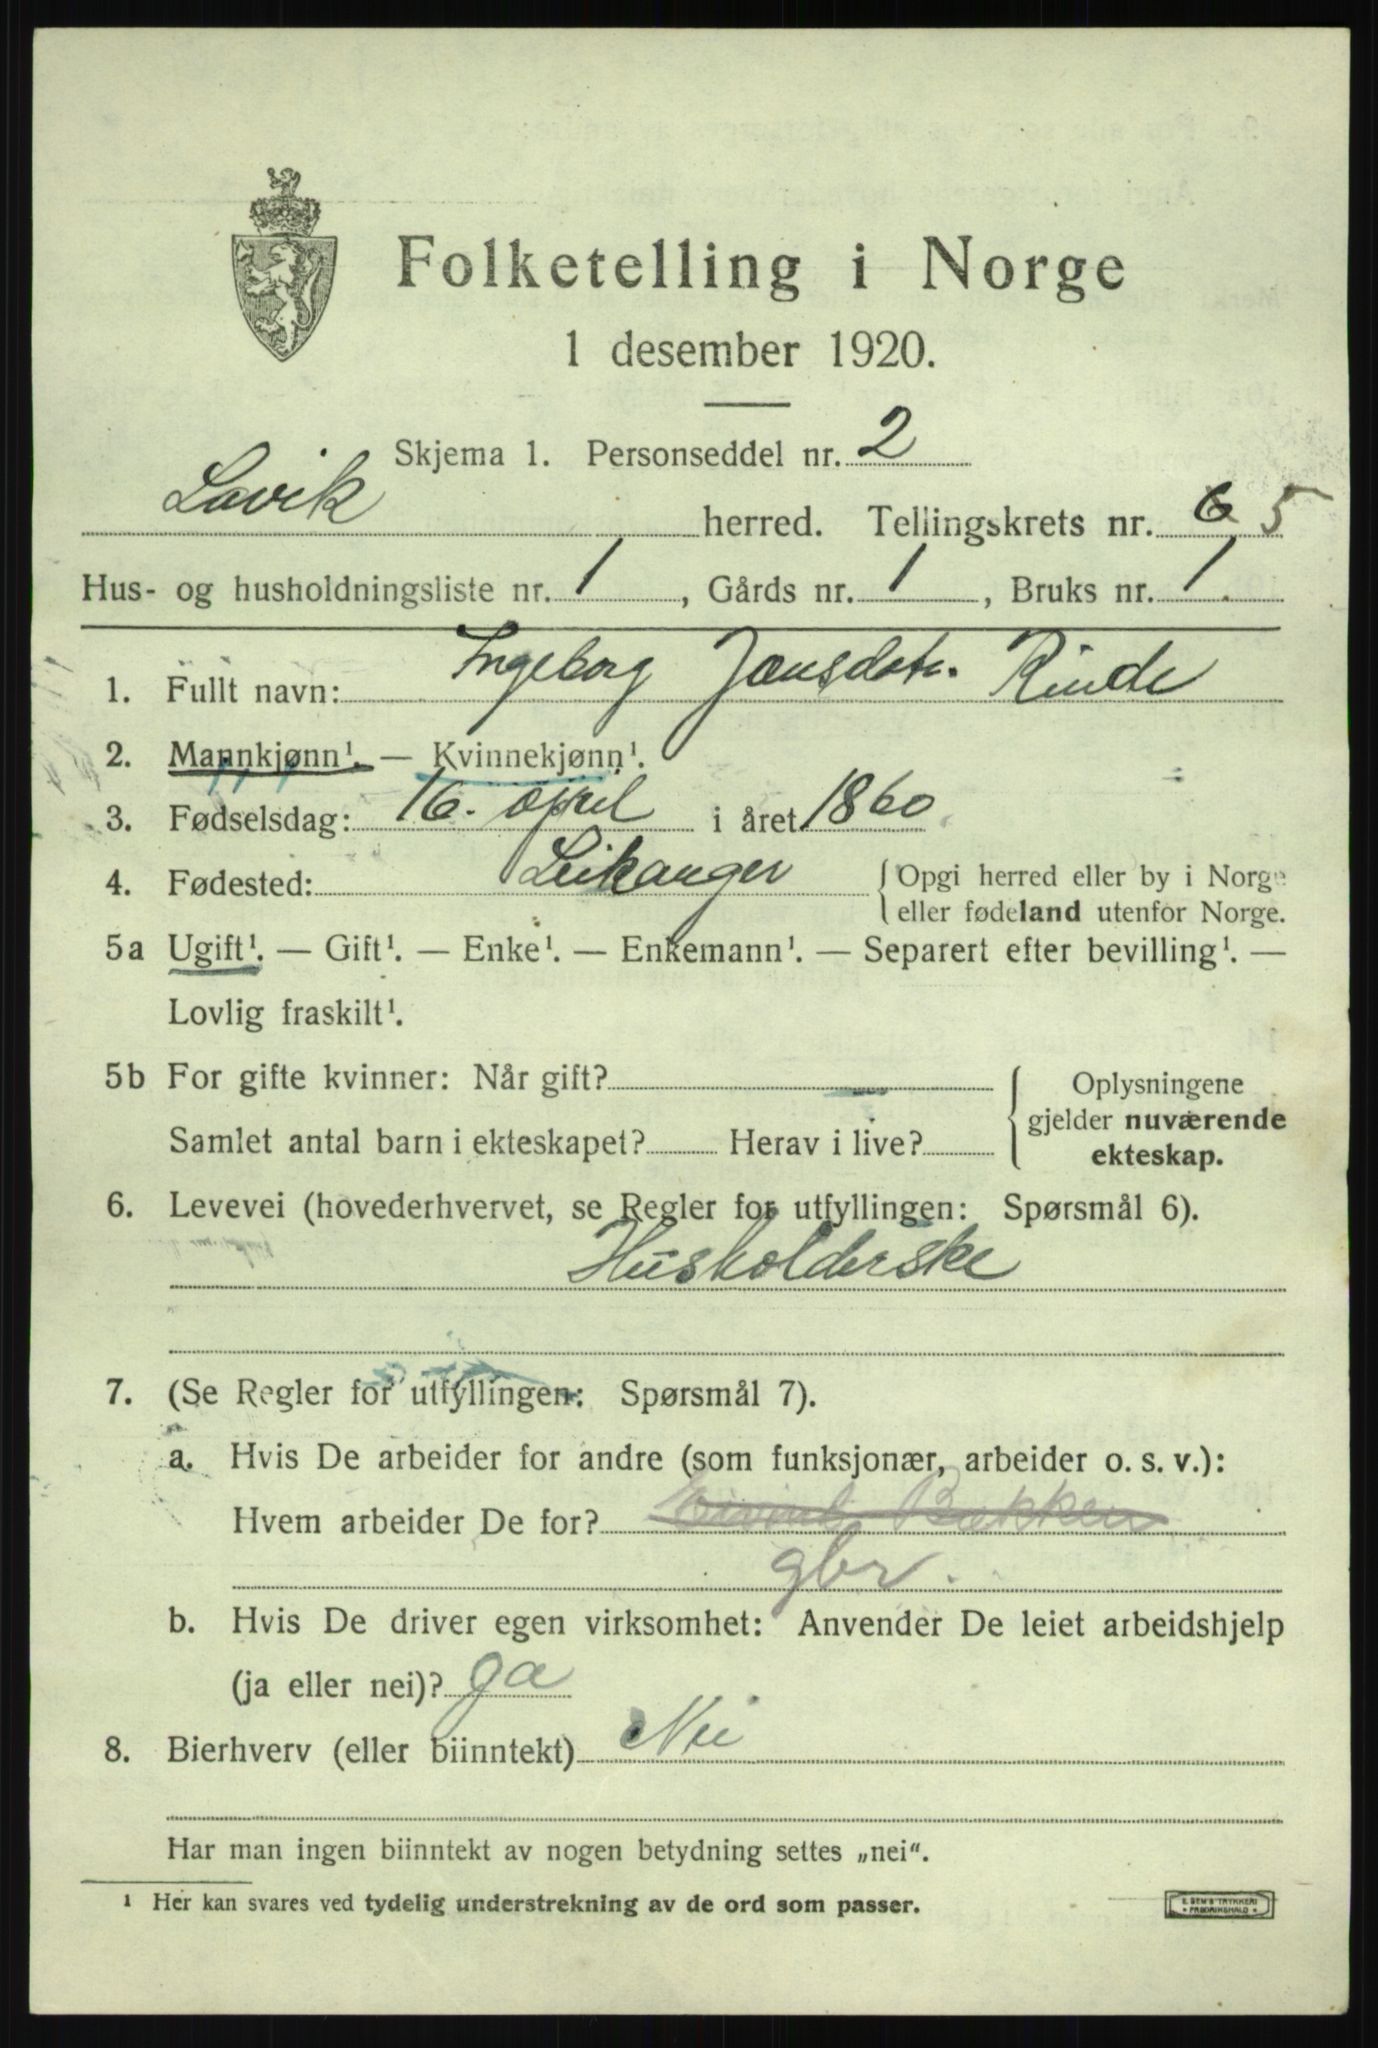 Folketelling i Norge
1 desember 1920.
Skjema 1. Personseddel nr. 2
Lavik herred. Tellingskrets nr. 6 5
Hus- og husholdningsliste nr. 1, Gårds nr. 1, Bruks nr. 1.
1. Fullt navn: Ingeborg Jensdatr. Rinde
2. Mannkjønn¹. — Kvinnekjønn¹.
3. Fødselsdag: 16. april i året 1860
4. Fødested: Leikanger { Opgi herred eller by i Norge
eller fødeland utenfor Norge.
5a Ugift¹. — Gift¹. — Enke¹. — Enkemann¹. — Separert efter bevilling¹. —
Lovlig fraskilt¹.
5b For gifte kvinner: Når gift? — { Oplysningene
gjelder nuværende
Samlet antal barn i ekteskapet? Herav i live?
ekteskap.
6. Levevei (hovederhvervet, se Regler for utfyllingen: Spørsmål 6).
Husholderske
7. (Se Regler for utfyllingen: Spørsmål 7).
a. Hvis De arbeider for andre (som funksjonær, arbeider o. s. v.):
Hvem arbeider De for? Eivind Bækken
gbr.
b. Hvis De driver egen virksomhet: Anvender De leiet arbeidshjelp
(ja eller nei)? ja
8. Bierhverv (eller biinntekt) Nei
Har man ingen biinntekt av nogen betydning settes „nei“.
¹ Her kan svares ved tydelig understrekning av de ord som passer.
E. SEM'S TRYKKERI
* FREDRIKSHALD *